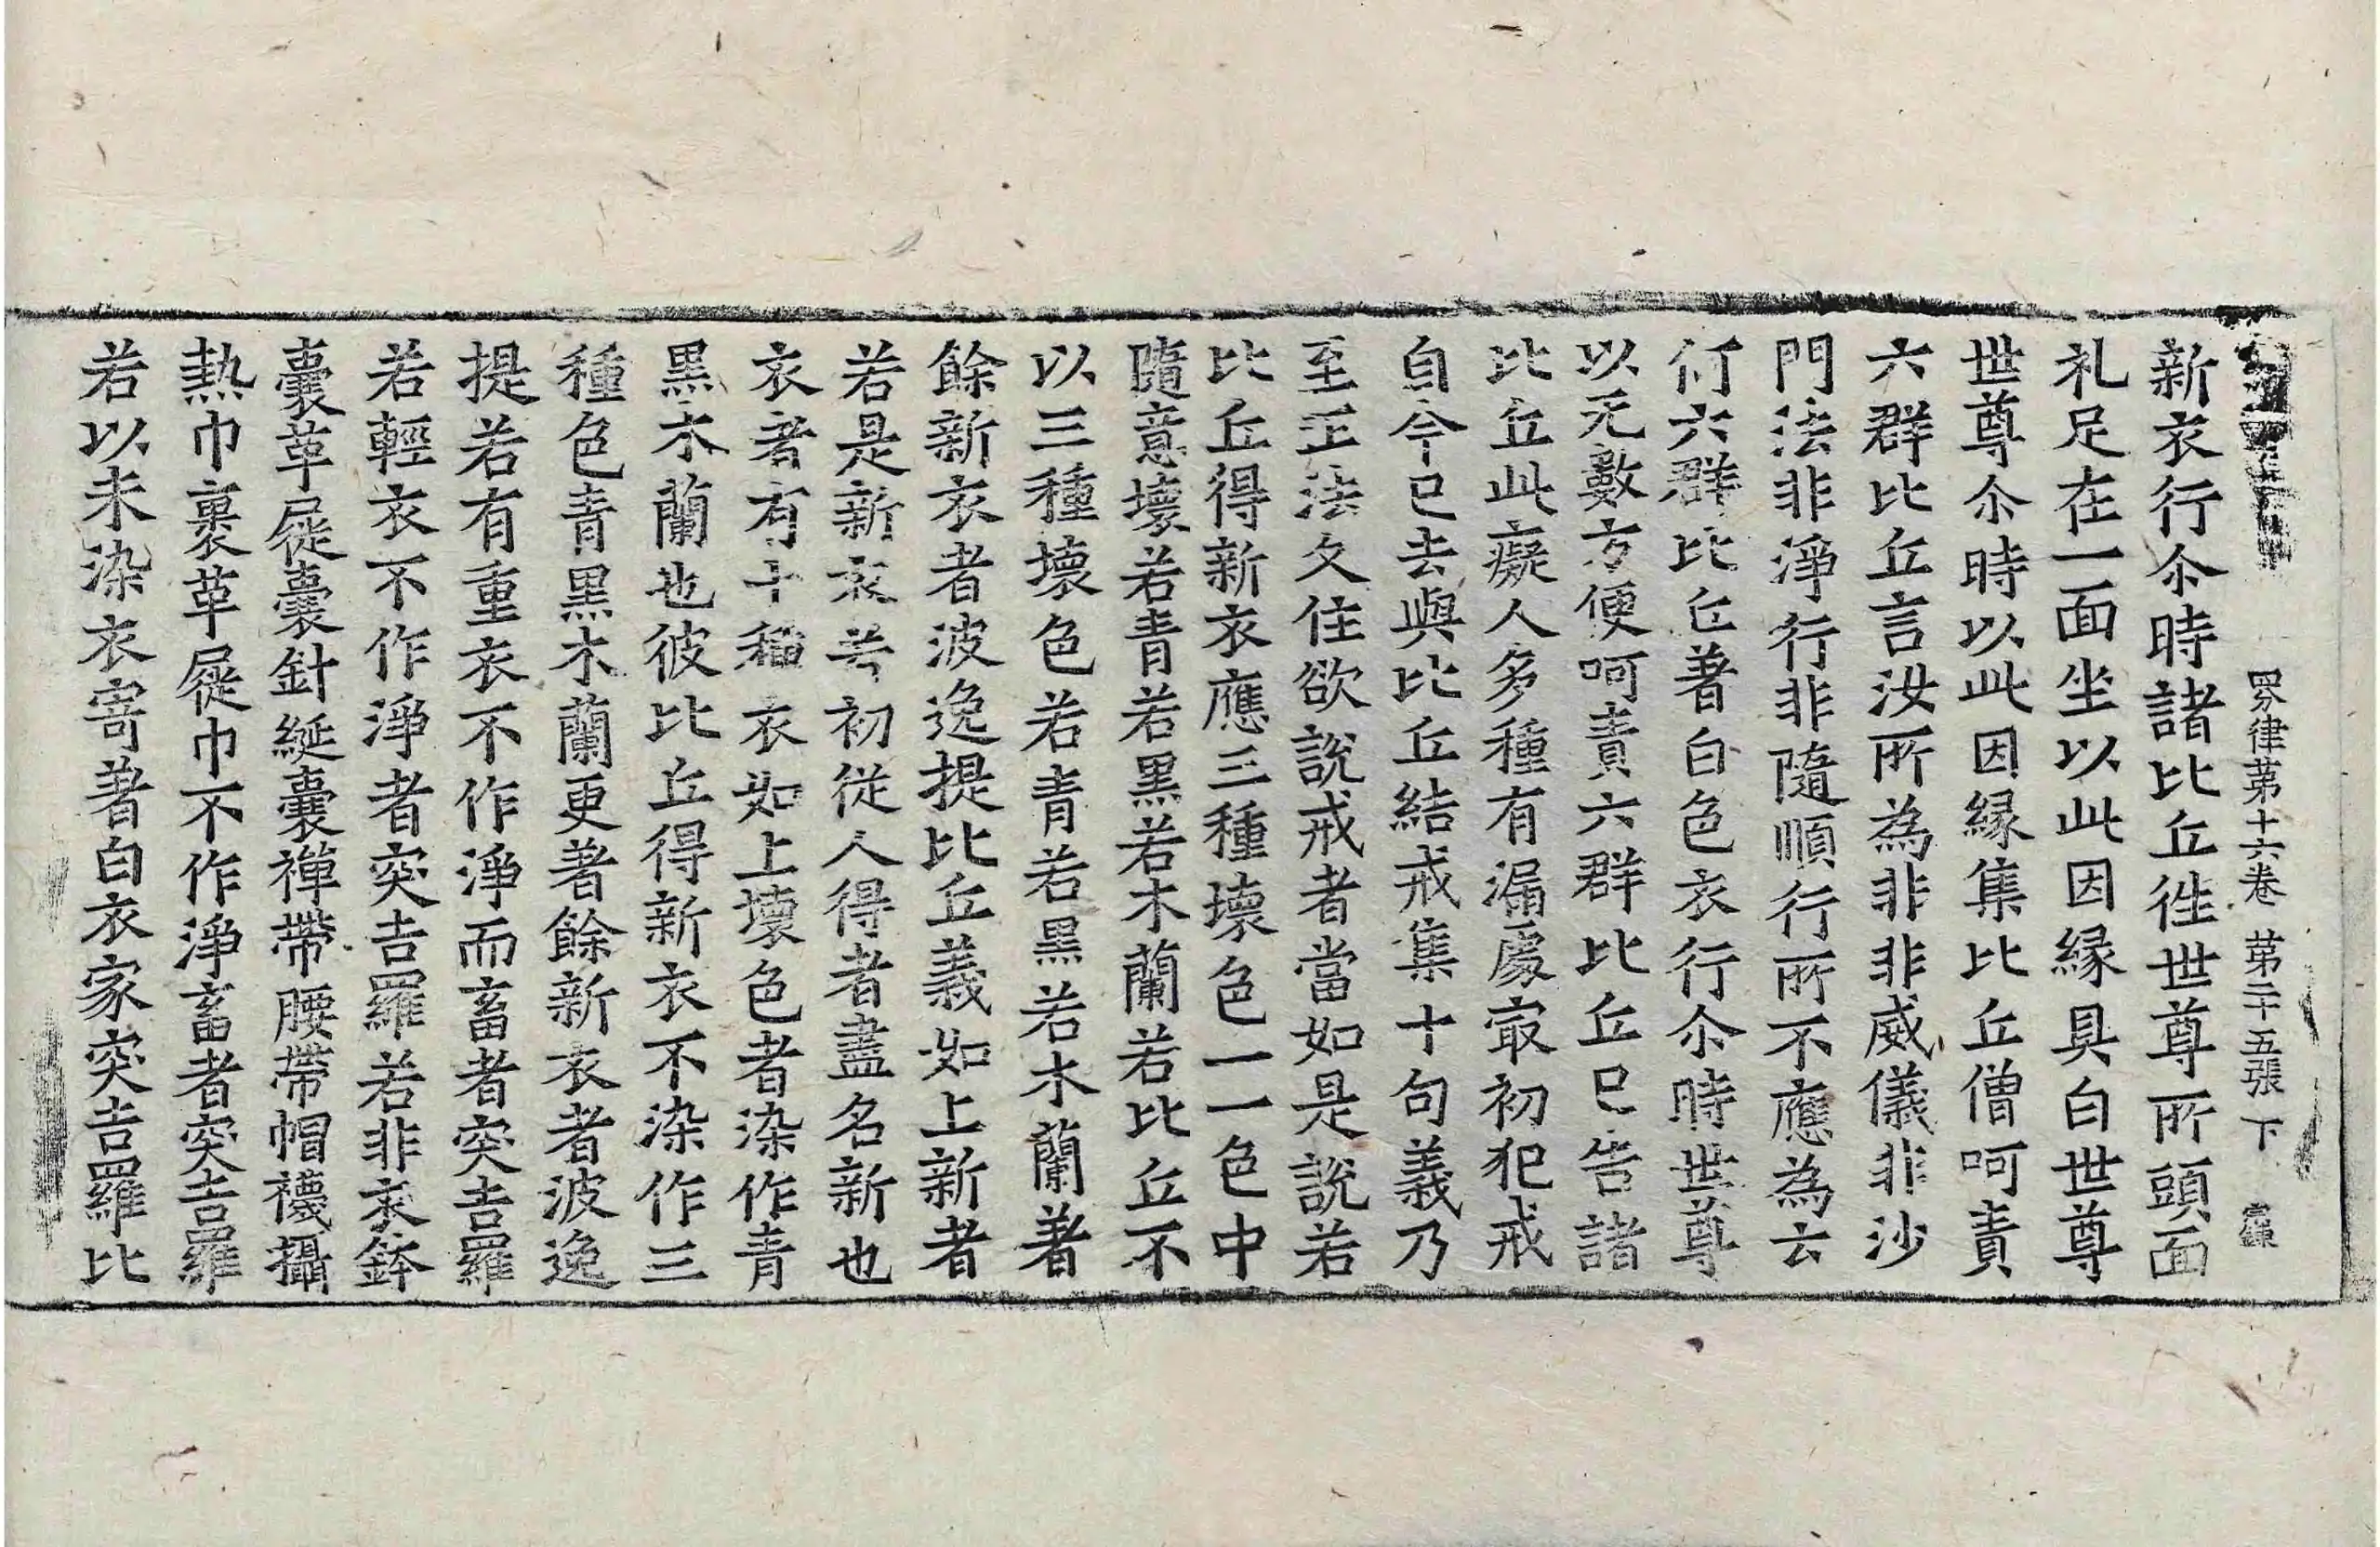 四分律苐十六卷 苐二十五張 下
新衣行尒時諸比丘徃世尊所頭面
礼足在一面坐以此因縁具白世尊
世尊尒時以此因縁集比丘僧呵責
六群比丘言汝所為非非威儀非沙
門法非淨行非隨順行所不應為云
何六群比丘著白色衣行尒時世尊
以无數方便呵責六群比丘已告諸
比丘此癡人多種有漏處㝡初犯戒
自今已去與比丘結戒集十句義乃
至正法久住欲說戒者當如是說若
比丘得新衣應三種壞色一一色中
隨意壞若青若黑若木蘭若比丘不
以三種壞色若青若黑若木蘭著
餘新衣者波逸提比丘義如上新者
若是新衣若初從人得者盡名新也
衣者有十種衣如上壞色者染作青
黑木蘭也彼比丘得新衣不染作三
種色青黑木蘭更著餘新衣者波逸
提若有重衣不作淨而畜者突吉羅
若輕衣不作淨者突吉羅若非衣鉢
囊革屣囊針綖囊禪帶腰帶帽襪攝
熱巾裹革屣巾不作淨畜者突吉羅
若以未染衣寄著白衣家突吉羅比